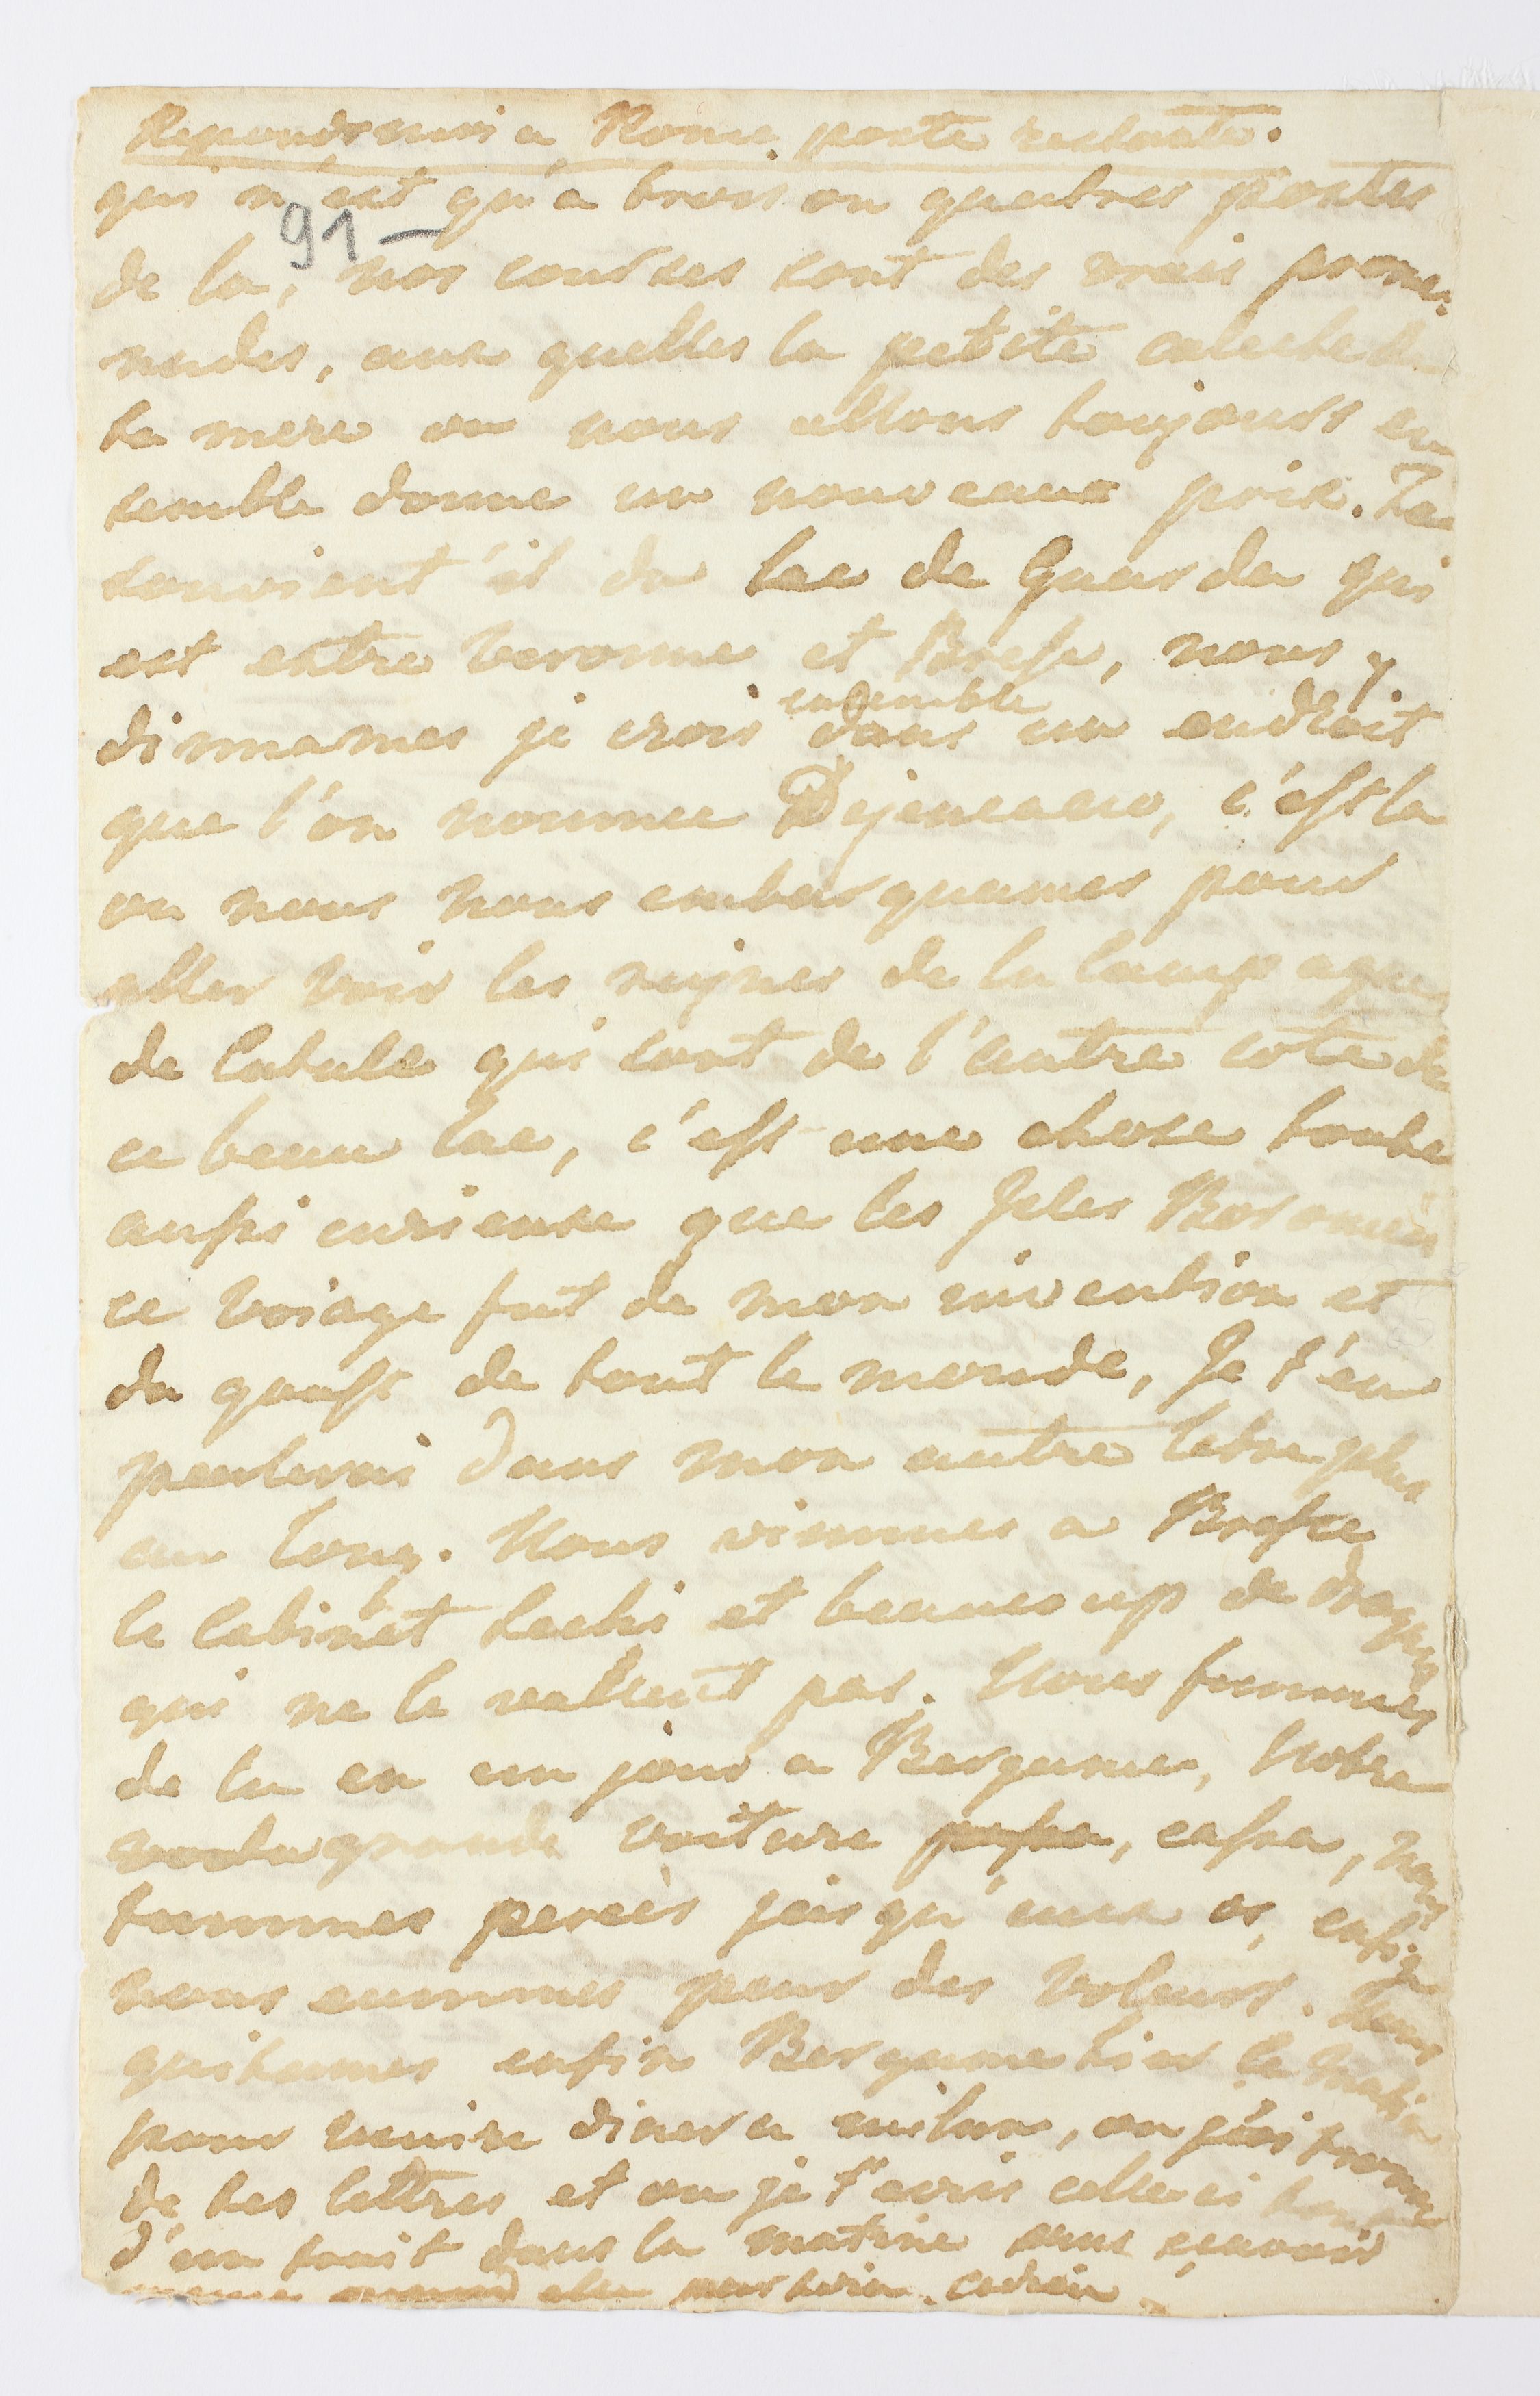 Reponds moi a Rome, poste restante.
qui n'est qu'a trois ou quatres postes
91 -
de la, nos courses sont des vrais prome-
nades, aux quelles la petite caleche de
ta mere ou nous allons toujours en
semble donne un nouveaux prix. Te
souvient 'il du lac de Guarda qui
est entre veronne et Bresse, nous y
ensemble
dinnames je crois dans un endroit
que l'on nomme c'est la
ou nous nous embarquames pour
aller voir les ruynes de la Campagne
de Catule qui sont de l'autre cote de
ce beau lac, c'est une chose toute
aussi curieuse que les Isles Boromées
ce voiage fut de mon invention et
du goust de tout le monde, Je t'en
parlerai dans mon autre letre plus
au long. Nous vimmes a Bresse
le Cabinet Lechi et beaucoup de drogues
qui ne le vallent pas. Nous fummes
de la en un jour a Bergame, Notre
grande voiture cassa, nous
fummes percés jusqu'aux os, enfin
nous eummes peur des voleurs. Nous
quitames enfin Bergame hier le matin
pour venire diner a milan, ou j'ai trouvé
de tes lettres et ou je t'ecris celle ci tout
d'un trait dans la matiné sans sçavoir
quand elle partira. adieu